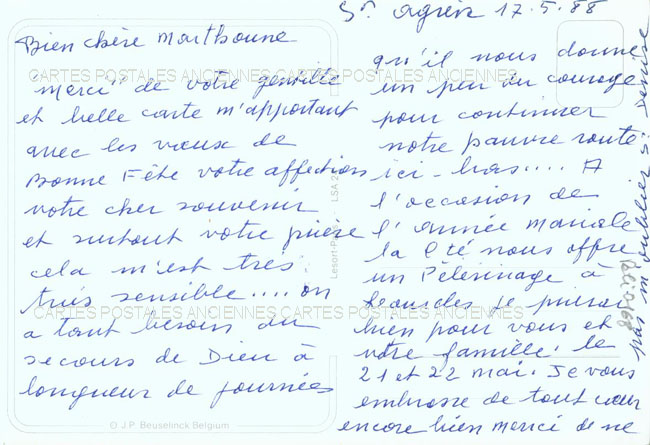 St Agrève 17.5.88
Bien chère Marthoune
"merci" de votre gentille
et belle carte m'apportant
avec les vœux de
Bonne Fête votre affection
votre cher souvenir
et surtout votre prière
cela m'est très
très sensible.... on
a tant besoin du
secours de Dieu à
longueur de journées
qu'il nous donne
un peu du courage
pour continuer
notre pauvre route
ici-bas.... A
l'occasion de
l'année mariale
la Cté nous offre
un Pèlerinage à
Lourdes je prierai
bien pour vous et
votre famille. le
21 et 22 mai. Je vous
embrasse de tout cœur
encore bien merci de ne
pas m'oublier si
CARTES POSTALES ANCIENNES CARTES POSTALES ANCIENNES
CARTES POSTALES ANCIENNES CARTES POSTALES ANCIENNES
LSA
© J.P. Beuselinck Belgium